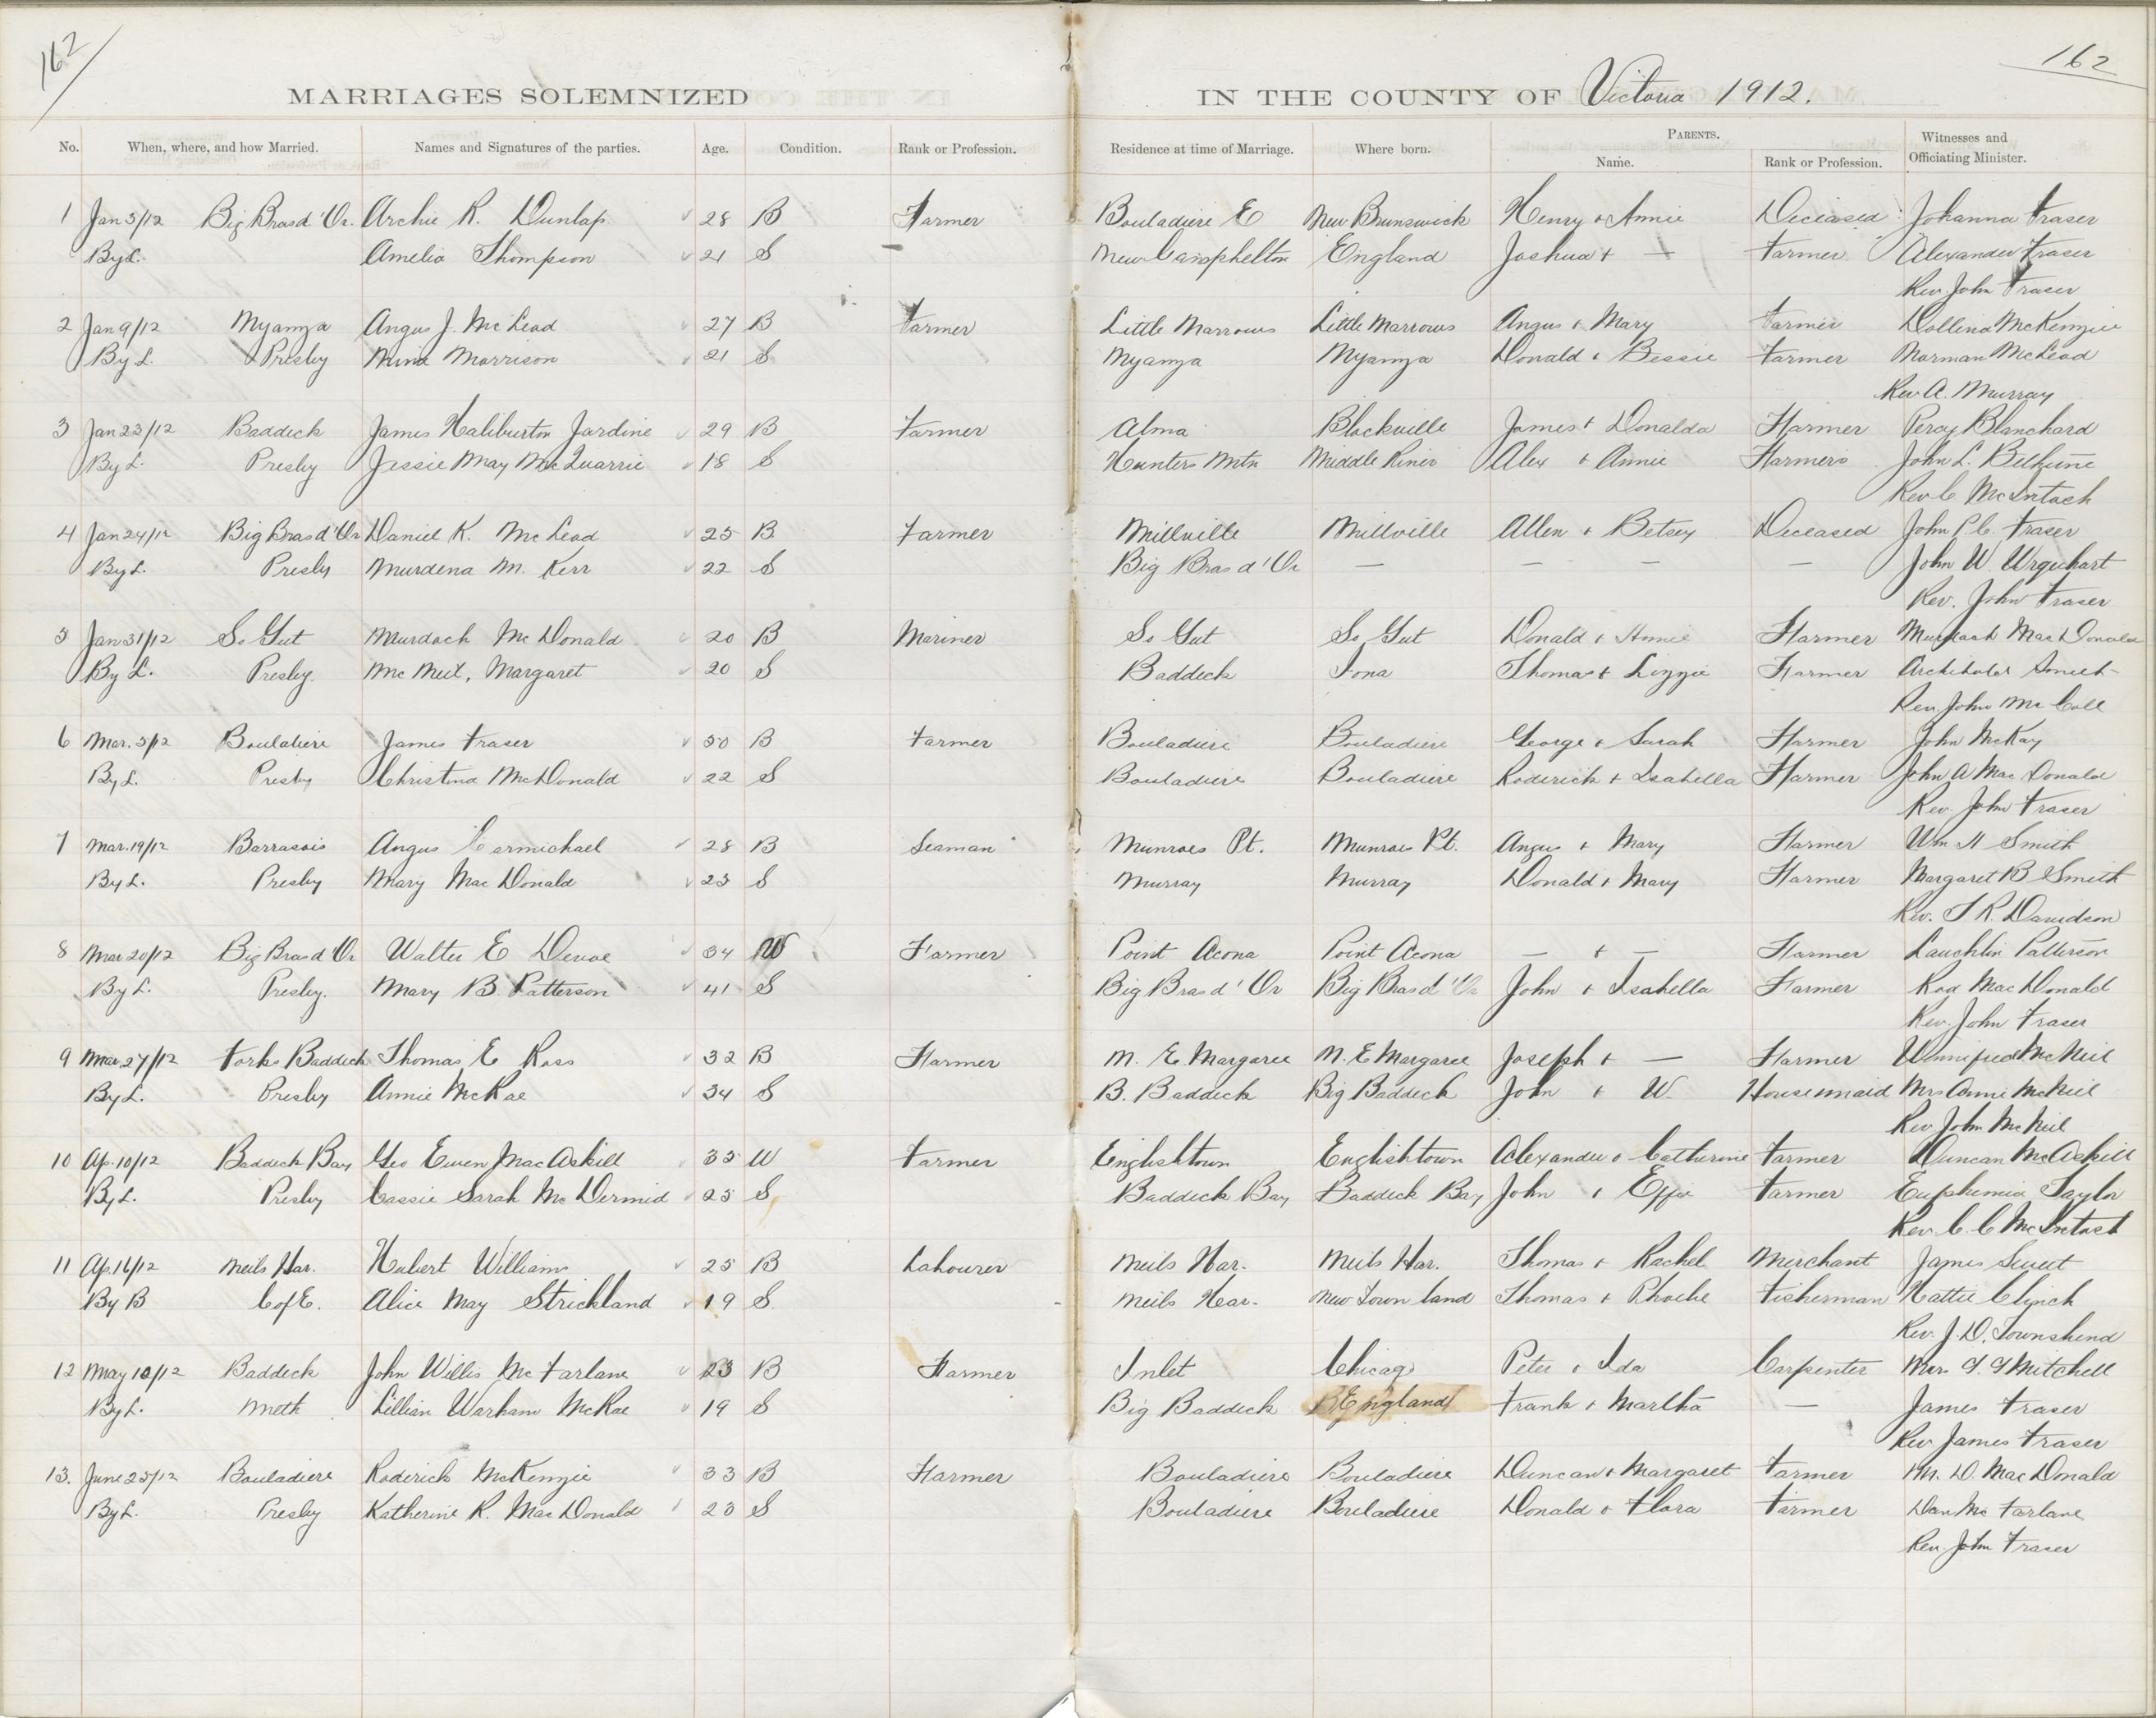 162
162
MARRIAGES SOLEMNIZED IN THE COUNTY OF Victoria 1912.
No. When, where, and how Married. Names and Signatures of the parties. Age. Condition. Rank or Profession. Residence at time of Marriage. Where born. PARENTS. Name. Rank or Profession. Witnesses and Officiating Minister.
1 Jan 3/12 Big Bras d'Or. Archie R. Dunlap 28 B Farmer Bouladire E New Brunswick Henry + Annie Deciased Johanna Fraser
By L. Amelia Thompson 21 S — New Campbelton England Joshua + — Farmer Alexander Fraser
Rev. John Fraser
2 Jan 9/12 Nyanza Angus J. McLeod 27 B Farmer Little Narrows Little Narrows Angus + Mary Farmer Dollena McKenzie
By L. Presby Mina Morrison 21 S Nyanza Nyanza Donald + Bessie Farmer Norman McLeod
Rev A. Murray
3 Jan 23/12 Baddeck James Haliburton Jardine 29 B Farmer Alma Blackville James + Donalda Farmer Percy Blanchard
By L. Presby Jessie May McQuarrie 18 S Hunters Mtn Middle River Alex + Annie Farmers John L. Bethune
Rev C McIntosh
4 Jan 24/12 Big Bras d'Or Daniel K. McLeod 25 B Farmer Millville Millville Allen + Betsey Deceased John P.C. Fraser
By L. Presby Murdena M. Kerr 22 S Big Bras d'Or — — — — John W. Urquhart
Rev. John Fraser
5 Jan 31/12 So Gut Murdoch McDonald 20 B Mariner So Gut So Gut Donald + Annie Farmer Murdoch MacDonald
By L. Presby. McNeil, Margaret 20 S Baddeck Iona Thomas + Lizzie Farmer Archibald Smith
Rev. John McColl
6 Mar. 5/12 Boulaliere James Fraser 30 B Farmer Bouladire Bouladiere George + Sarah Farmer John McKay
By L. Presby Christina McDonald 22 S Bouladiere Bouladiere Roderick + Isabella Farmer John A MacDonald
Rev. John Fraser
7 Mar. 19/12 Barrasois Angus Carmichael 28 B Seaman Munroes Pt. Munroes Pt. Angus + Mary Farmer Wm H Smith
By L. Presby Mary MacDonald 23 S Murray Murray Donald + Mary Farmer Margaret B Smith
Rev. R. Davidson
8 Mar 20/12 Big Bras d'Or Walter E Devoe 34 W Farmer Point Acona Point Acona — + — Farmer Lauchlin Patterson
By L. Presby. Mary B. Patterson 41 S Big Bras d'Or Big Bras d'Or John + Isabella Farmer Rod MacDonald
Rev. John Fraser
9 Mar 27/12 Forks Baddeck Thomas E Ross 32 B Farmer N. E Margaree N. E Margaree Joseph + — Farmer Winnifred McNeil
By L. Presby Annie McRae 34 S B. Baddeck Big Baddeck John + W Housemaid Mrs Annie McNeil
Rev John McNeil
10 Ap. 10/12 Baddeck Bay Geo Ewen MacAskill 35 W Farmer Englishtown Englishtown Alexander + Catherine Farmer Duncan McAskill
By L. Presby Cassie Sarah McDermid 25 S Baddeck Bay Baddeck Bay John + Effie Farmer Euphemia Taylor
Rev. C. C McIntosh
11 Ap. 16/12 Neils Har. Hubert Williams 25 B Labourer Neils Har. Neils Har. Thomas + Rachel Merchant James Sweet
By B C of E. Alice May Strickland 19 S Neils Har. New Foun land Thomas + Phoebe Fisherman Hattie Clynch
Rev. J. D. Townshend
12 May 10/12 Baddeck John Willis McFarlane 23 B Farmer Inlet Chicago Peter + Ida Carpenter Mitchell
By L. Meth Lillian Warham McRae 19 S Big Baddeck England Frank + Martha — James Fraser
Rev. James Fraser
13. June 25/12 Bouladiere Roderick McKenzie 33 B Farmer Bouladiere Bouladiere Duncan + Margaret Farmer M. D. MacDonald
By L. Presby Katherine R. MacDonald 23 S Bouladiere Bouladiere Donald + Flora Farmer Dan McFarlane
Rev. John Fraser